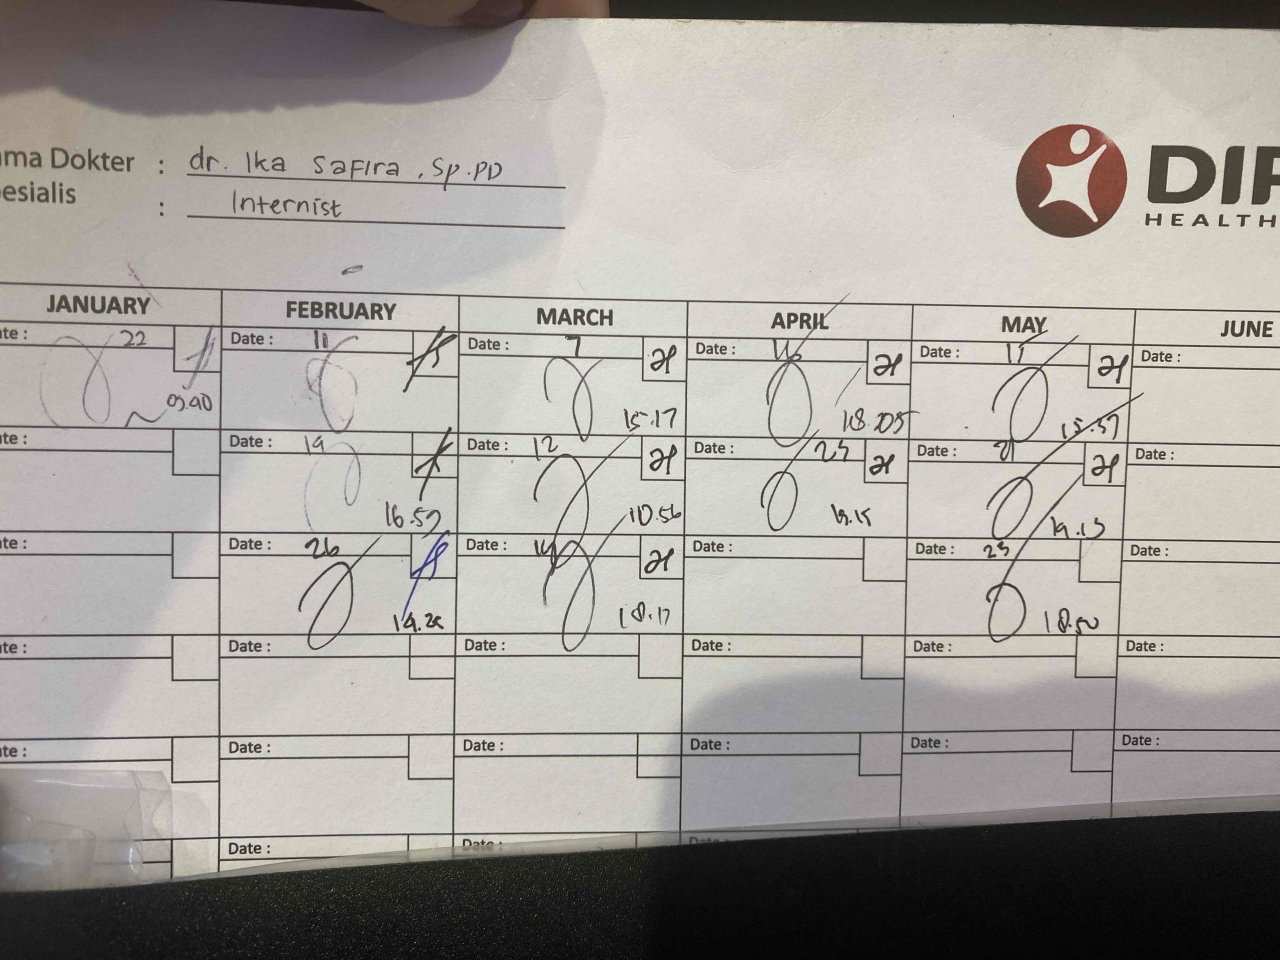 ama Dokter : dr. Ika Safira, Sp.PD
esialis : Internist
DIP
HEALTH
JANUARY FEBRUARY MARCH APRIL MAY JUNE
te : 22 Date : 11 Date : 7 Date : 16 Date : Date :
15.17 18.05 15.57
te : Date : 19 Date : 12 Date : Date : Date :
16.57 10.56 19.15 19.13
te : Date : 26 Date : 14 Date : Date : Date :
18.17 18.50
te : Date : Date : Date : Date : Date :
te : Date : Date : Date : Date : Date :
Date : Date : Date :